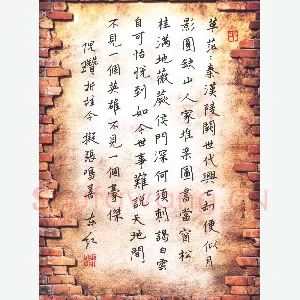 草茫秦漢陵闕世代興亡却便似月
影圓缺山人家堆案圖書當窗松
桂滿地薇蕨侯門深何須刺謁白雲
自可怡悅到如今世事難說天地間
不見一個英雄不見一個豪傑
倪瓚折桂令擬張鳴善